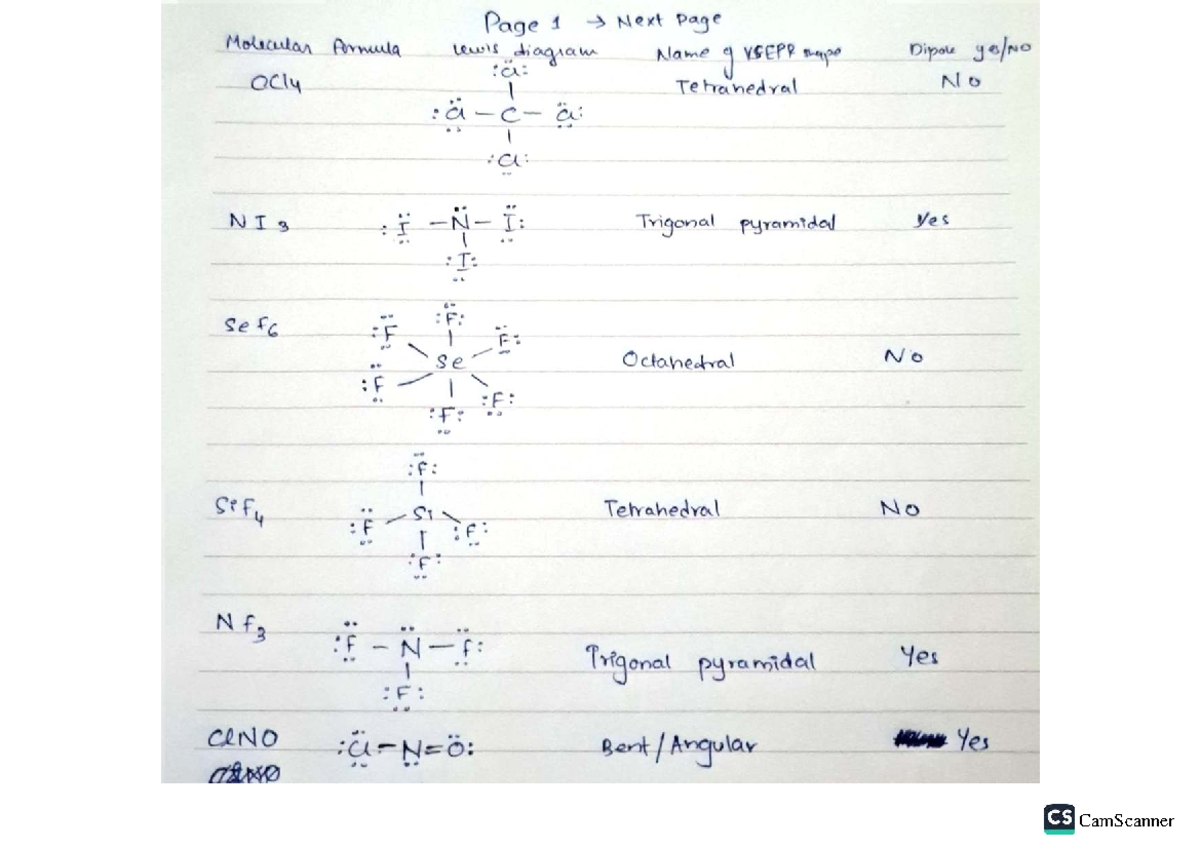 Page 1 → Next Page
Molecular formula Lewis diagram Name of VSEPR shape Dipole yes/No
OCl4 Tetrahedral No
:Cl:
:Cl – C – Cl:
:Cl:
NI3 :I – N – I: Trigonal pyramidal Yes
:I:
SeF6 :F :F: F:
Se Octahedral No
:F :F: :F:
:F:
SiF4 :F Si :F: Tetrahedral No
:F:
Nf3 :F – N – F: Trigonal pyramidal Yes
:F:
ClNO :Cl – N = O: Bent / Angular Yes
CS CamScanner